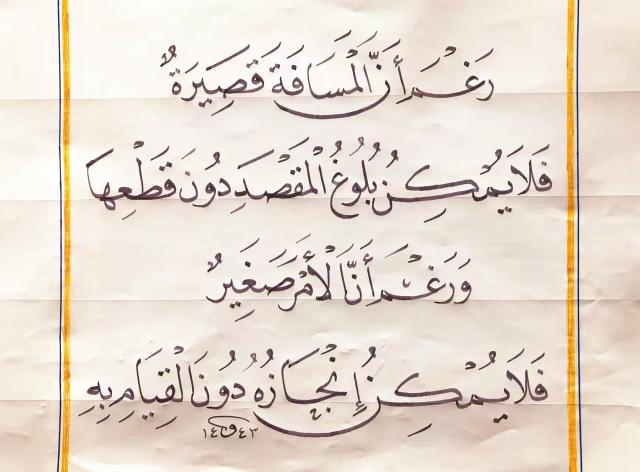 رَغْمَ أَنَّ الْمَسَافَةَ قَصِيرَةٌ
فَلَا يُمْكِنُ بُلُوغُ الْمَقْصَدِ دُونَ قَطْعِهَا
وَرَغْمَ أَنَّ الْأَمْرَ صَغِيرٌ
فَلَا يُمْكِنُ إِنْجَازُهُ دُونَ الْقِيَامِ بِهِ